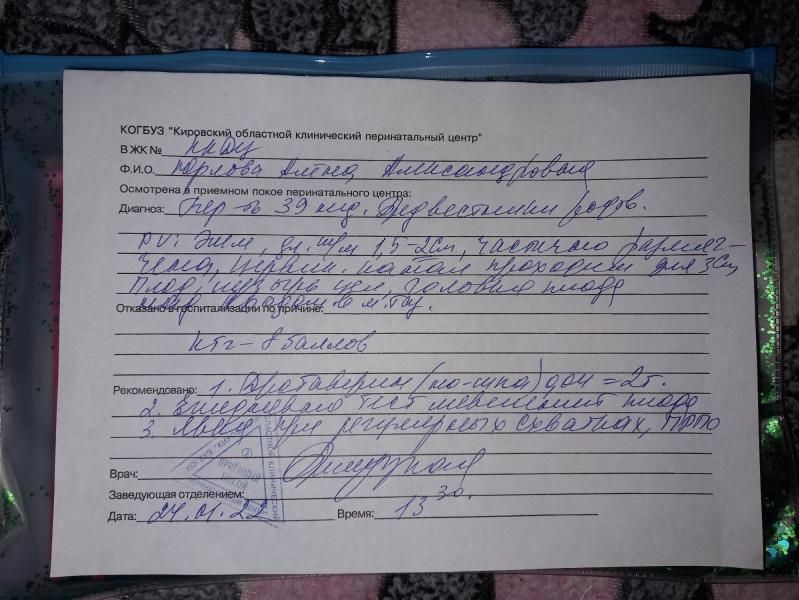 КОГБУЗ "Кировский областной клинический перинатальный центр"
В ЖК № ККДЦ
Ф.И.О. Юрлова Алёна Александровна
Осмотрена в приемном покое перинатального центра:
Диагноз: Бер-ть 39 нед. Предвестники родов.
PV: дл. ш/м 1,5-2см, частично размяг-
чена, церви. канал проходим для 3см
Плод. пузырь цел, головка плода
над входом в м.таз.
Отказано в госпитализации по причине:
КТГ - 8 баллов
Рекомендовано: 1. Дротаверин (но-шпа) = 2т.
2. Ежедневно тест шевелений плода
3. Явка при регулярных схватках, ПРПО
ПРИЕМНЫЙ
ПОКОЙ
Врач:
Заведующая отделением:
Дата: 24.01.22 Время: 13 30.